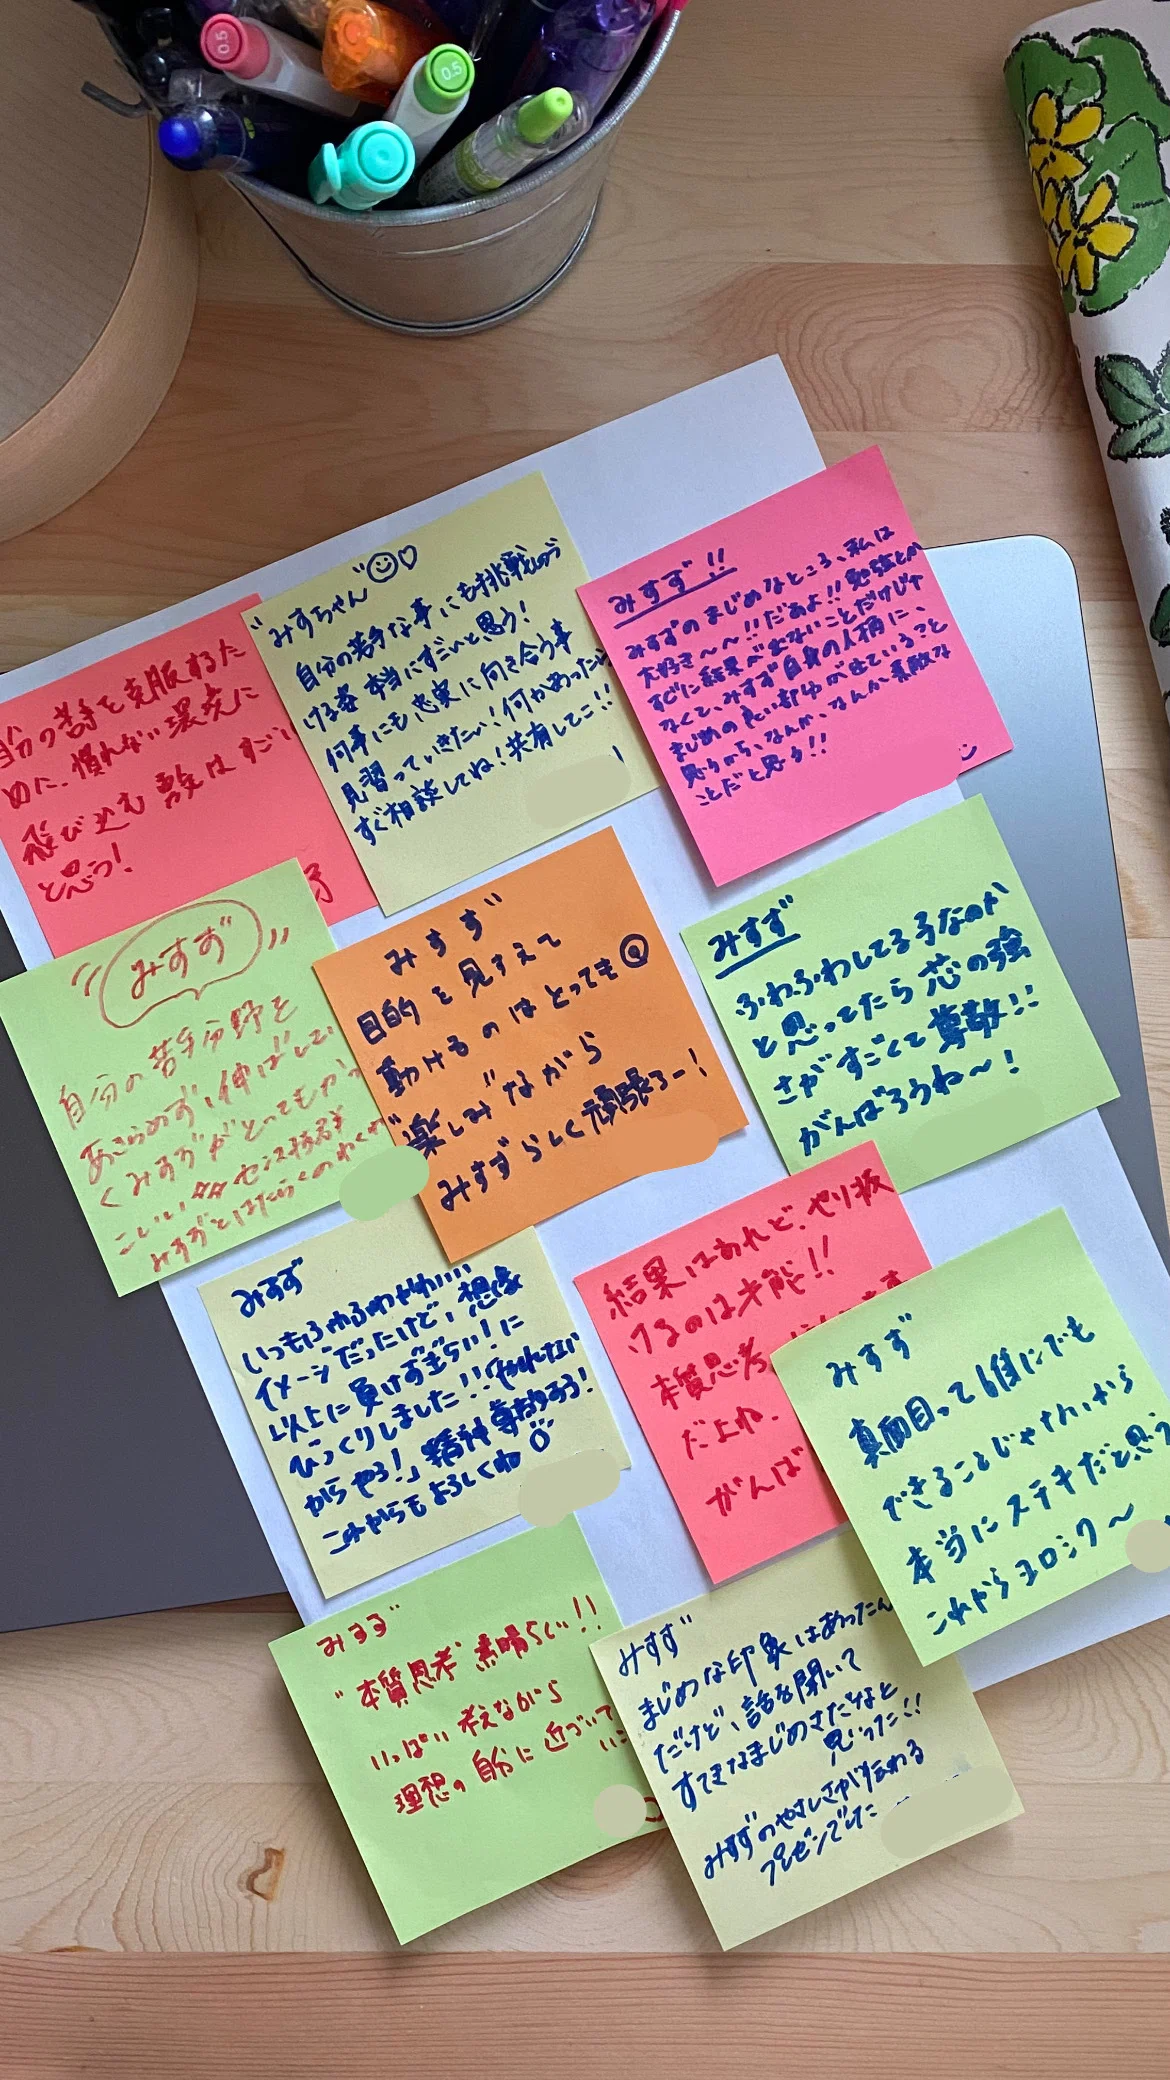 0.5
0.5
自分の苦手を克服するた
めに、慣れない環境に
飛び込む 勢はすごい
と思う!
みすちゃん
自分の苦手な事にも挑戦つづ
ける姿 本当にすごいと思う!
何事にも忠実に向き合う事
見習っていきたい!何かあったら
すぐ相談してね!共有してこ!!
みすず!!
みすずのまじめなところ、私は
大好き〜〜!!だぁよ!!勉強とか
すぐに結果が出ないことだけじゃ
なくて、みすず自身の人柄に、
まじめの良い部分が出ていること
思うから、なんか、なんか素敵な
ことだと思う!!
"みすず"
自分の苦手分野を
あきらめず、伸ばしてい
くみすずがとってもかっ
こいい
みすずとはたらくのわくわ
みすず
目的を見すえて
動けるのはとっても
"楽しみ"ながら
みすずらしく頑張ろー!
みすず
ふわふわしてる子なのか
と思ってたら芯の強
さがすごくて尊敬!!
がんばろうね〜!
みすず
いつもふわふわやわい
イメージだったけど、想像
以上に負けず嫌い!に
びっくりしました!!「やれない
からやろ!」精神 尊敬だろ!
これからもよろしくね
結果はあれど、やり抜
けるのは才能!!
本質思考
だよね.
がんば
みすず
真面目って1番にでも
できることじゃないから
本当にステキだと思う
これからヨロシク〜
みすず
"本質思考"素晴らしい!!
いっぱい考えながら
理想の自分に近づいて
いこ
みすず
まじめな印象はあったん
だけど、話を聞いて
すてきなまじめさだなと
思った!!
みすずのやさしさが伝わる
プレゼンでした